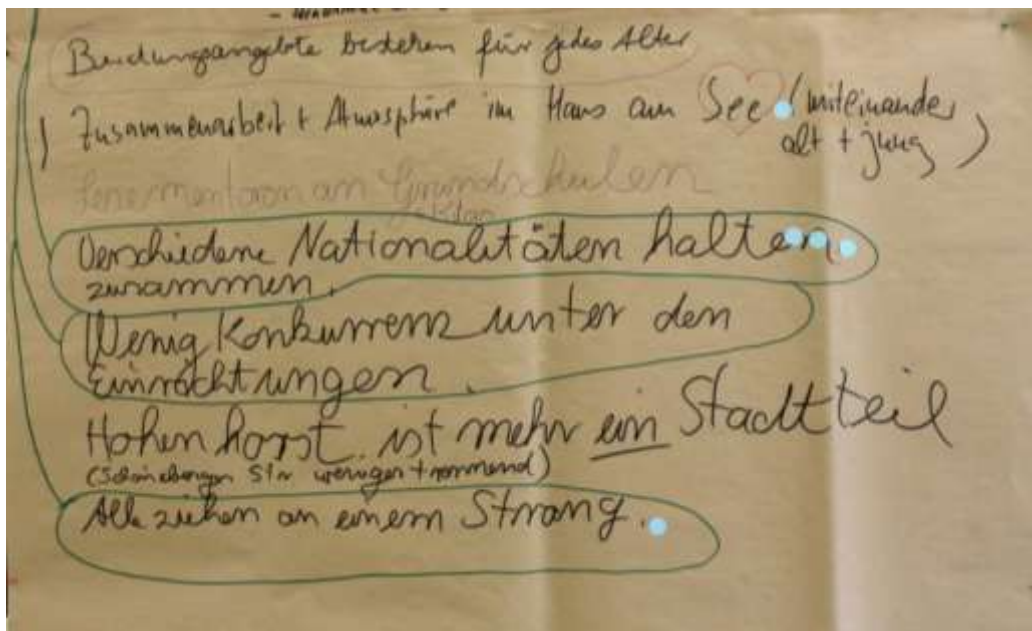 angebote bestehen für jedes Alter
Zusammenarbeit + Atmosphäre im Haus am See (miteinander
alt + jung)
an Grundschulen
Verschiedene Nationalitäten halten
zusammen.
Wenig Konkurrenz unter den
Einrichtungen.
Hohenhorst ist mehr ein Stadtteil
(Schöneberger Str weniger trennend)
Alle ziehen an einem Strang.